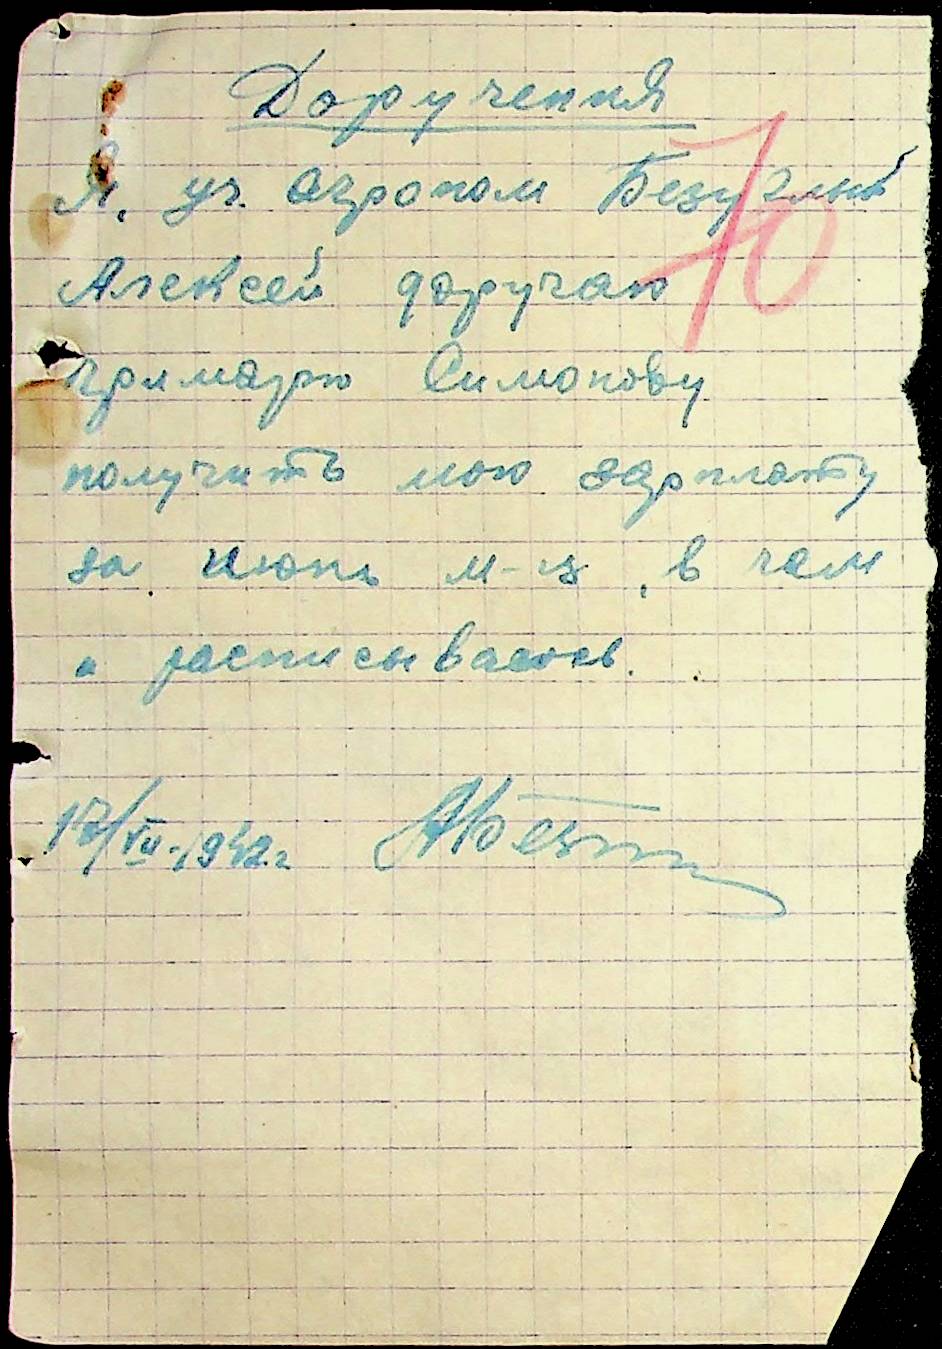 Доручення
Я, уч. агроном Безуглый
Алексей доручаю
примарю Симонову
получить мою зарплату
за июнь м-ц, в чем
и расписываюсь.
70
17/VII-1942 г.